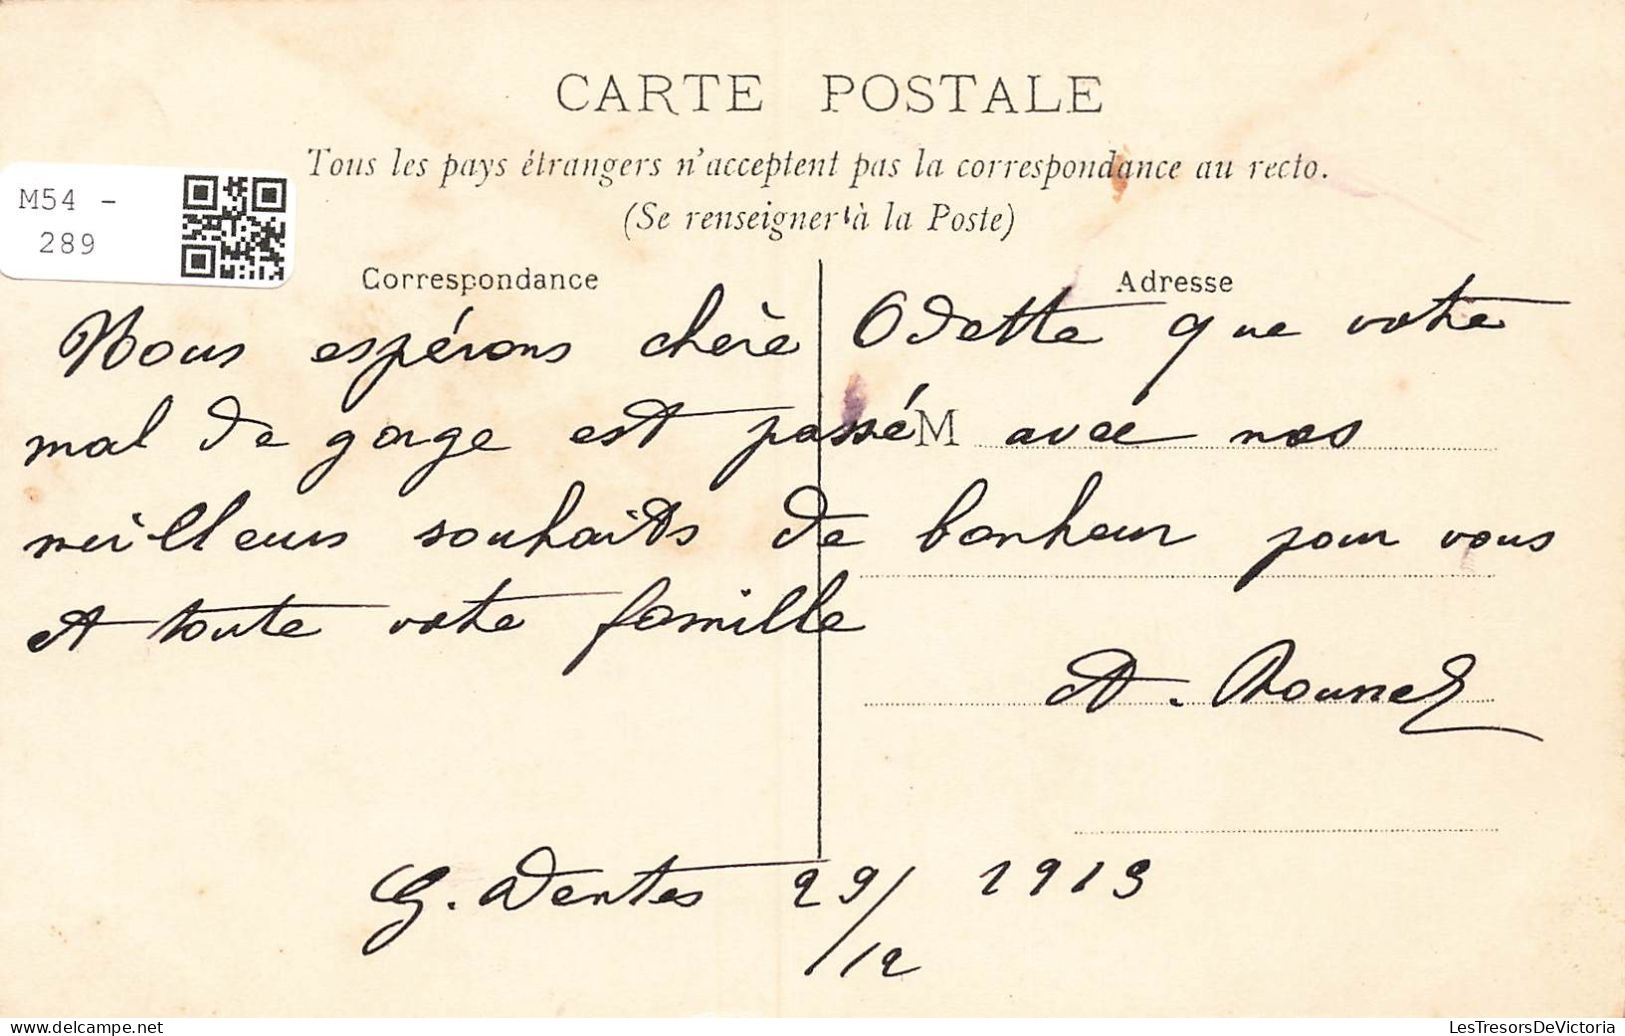 CARTE POSTALE
Tous les pays étrangers n'acceptent pas la correspondance au recto.
(Se renseigner à la Poste)
M54 -
289
Correspondance
Adresse
Nous espérons chère Odette que votre
mal de gorge est passé M avec nos
meilleurs souhaits de bonheur pour vous
et toute votre famille
A.
G. 29/12 1913
LesTresorsDeVictoria
https://www.delcampe.net